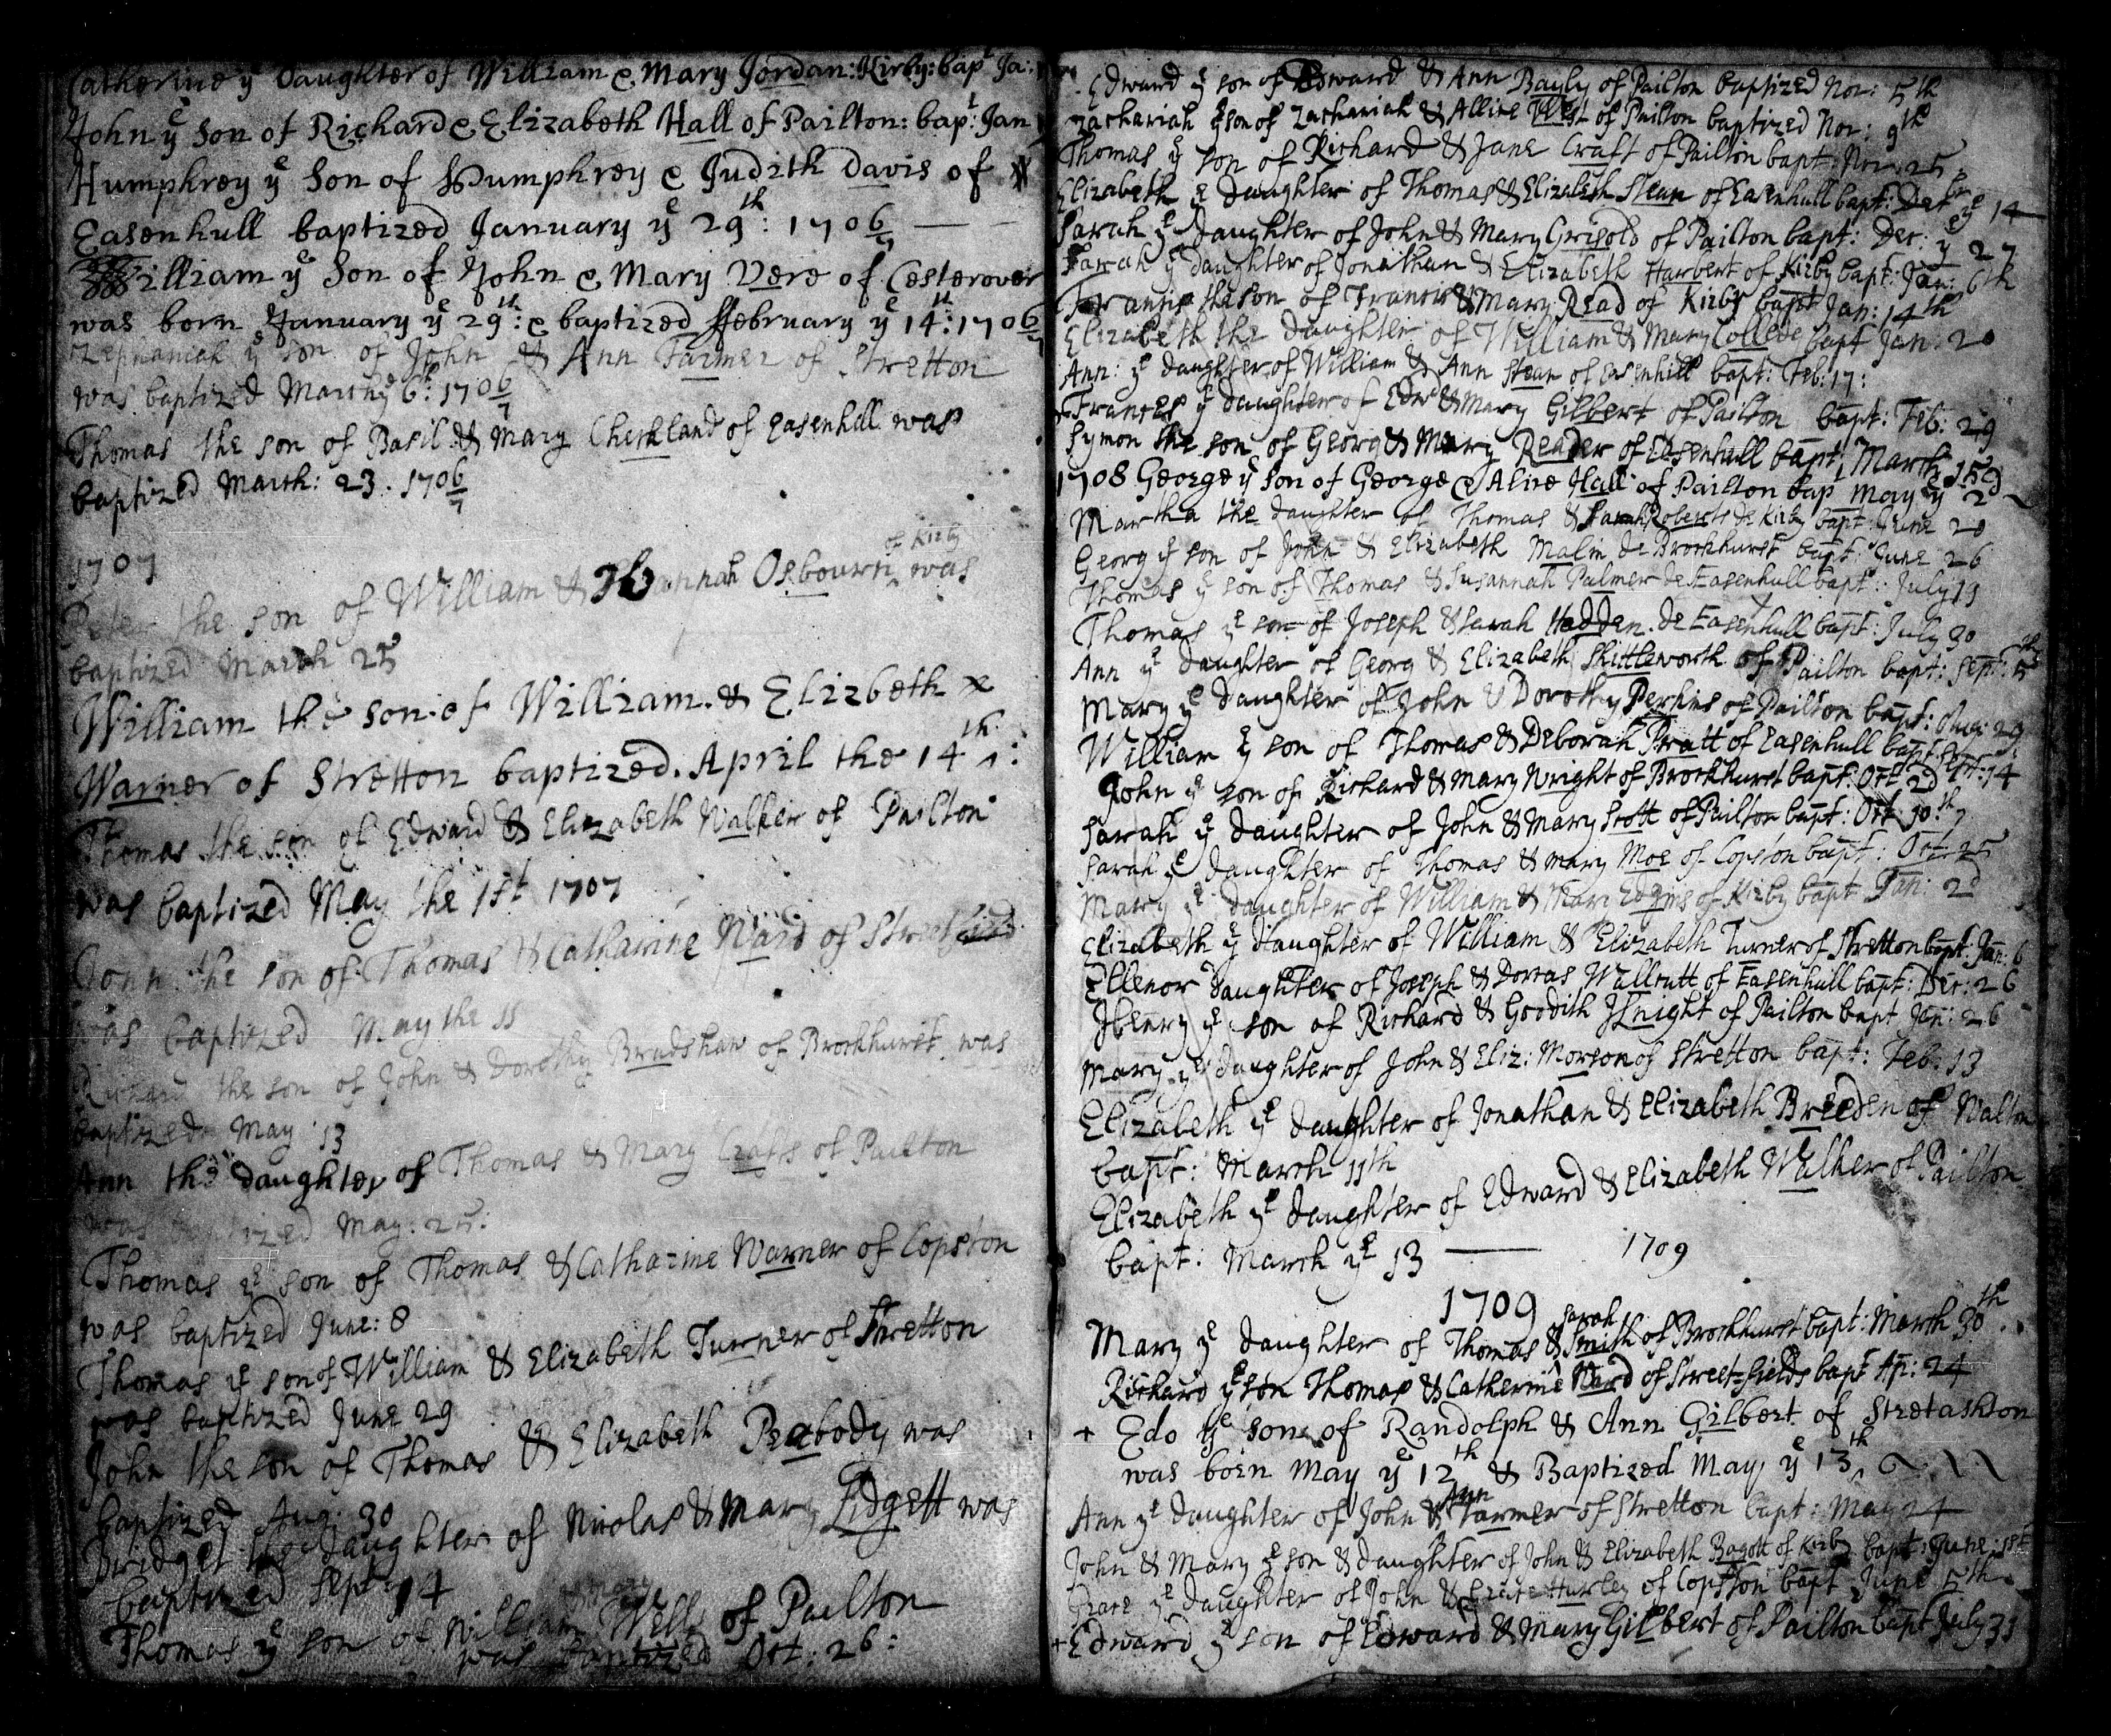 Catherine ye Daughter of William & Mary Jordan: Kirby: bapt Ja:
John ye son of Richard & Elizabeth Hall of Pailton: bapt: Jan
Humphrey ye Son of Humphrey & Judith Davis of
Easenhull baptized January ye 29th: 1706/7
William ye Son of John & Mary Vere of Cesterover
was born January ye 29th: & baptized ffebruary ye 14th: 1706/7
Zephaniah ye son of John & Ann Farmer of Stretton
was baptized March ye 6th: 1706/7
Thomas the son of Basil & Mary Checkland of Easenhill was
baptized March: 23. 1706/7
1707
Peter the son of William & Hannah Osbourn of Kirby was
baptized March 25
William the son of William & Elizbeth
Warner of Stretton baptized April the 14th:
Thomas the son of Edward & Elizabeth Walker of Pailton
was baptized May the 1st 1707
John the son of Thomas & Catharine Ward of Street
was baptized May the 11
Richard the son of John & Dorothy Bradshaw of Brockhurst was
baptized May 13
Ann the daughter of Thomas & Mary Crafts of Pailton
was baptized May: 25:
Thomas ye son of Thomas & Catharine Warner of Copston
was baptized June: 8
Thomas ye son of William & Elizabeth Turner of Stretton
was baptized June 29
John the son of Thomas & Elizabeth Peabody was
baptized Aug: 30
Bridget the Daughter of Nicolas & Mary Lidgett was
baptized Sept: 14
Thomas ye son of William & Mary Wells of Pailton
was baptized Oct: 26:
Edward ye son of Edward & Ann Bayly of Pailton baptized Nov: 5th
Zachariah ye son of Zachariah & Allice of Pailton baptized Nov: 9th
Thomas ye son of Richard & Jane Craft of Pailton bapt: Nov: 25
Elizabeth ye Daughter of Thomas & Elizabeth Stean of Easenhull bapt: Decbr ye 14
Sarah ye Daughter of John & Mary Grisold of Pailton bapt: Dec: ye 27
Sarah ye Daughter of Jonathan & Elizabeth Harbert of Kirby bapt: Jan: 6th
Francis the son of Francis & Mary Read of Kirby bapt Jan: 14th
Elizabeth the Daughter of William & Mary Collede bapt Jan: 20
Ann: ye Daughter of William & Ann Stean of Easenhill bapt: Feb: 17:
+ Frances ye Daughter of Edwd & Mary Gilbert of Pailton bapt: Feb: 29
Symon the son of Georg & Mary Reader of Easenhull bapt: March 15
1708 George ye son of George & Alice Hall of Pailton bapt May ye 2d
Martha the Daughter of Thomas & Sarah Roberts de Kirby bapt: June 20
Georg ye son of John & Elizabeth Malin de Brockhurst bapt: June 26
Thomas ye son of Thomas & Susannah Palmer de Easenhull bapt: July 19
Thomas ye son of Joseph & Sarah Hadden de Easenhull bapt: July 30
Ann ye Daughter of Georg & Elizabeth Shittleworth of Pailton bapt: Sept: 5th
Mary ye Daughter of John & Dorothy Perkins of Pailton bapt: Aug: 29
William ye son of Thomas & Deborah Pratt of Easenhull bapt: Sept: 14
John ye son of Richard & Mary Wright of Brockhurst bapt: Oct 2d
Sarah ye Daughter of John & Mary Scott of Pailton bapt: Oct 10th
Sarah ye Daughter of Thomas & Mary Moe of Copston bapt: Oct: 25
Mary ye Daughter of William & Mary Edgins of Kirby bapt Jan: 2d
Elizabeth ye Daughter of William & Elizabeth Turner of Stretton bapt: Jan: 6
Ellenor Daughter of Joseph & Dorcas Wallcutt of Easenhull bapt: Dec: 26
Henry ye son of Richard & Goodith Knight of Pailton bapt Jan: 26
Mary ye Daughter of John & Eliz: Morson of Stretton bapt: Feb: 13
Elizabeth ye Daughter of Jonathan & Elizabeth Breeden of Walton
bapt: March 11th
Elizabeth ye Daughter of Edward & Elizabeth Walker of Pailton
bapt: March ye 13 1709
1709
Mary ye Daughter of Thomas & Sarah Smith of Brockhurst bapt: March 30th
Richard ye son Thomas & Catherine Ward of Street=fields bapt Ap: 24
+ Edo ye son of Randolph & Ann Gilbert of Stretashton
was born May ye 12th & Baptized May ye 13th
Ann ye Daughter of John & Ann Farmer of Stretton bapt: May 24
John & Mary ye son & Daughter of John & Elizabeth Bagott of Kirby bapt: June: 1st
Grace ye Daughter of John & Grace Hurley of Copston bapt June 5th
+ Edward ye son of Edward & Mary Gilbert of Pailton bapt July 31